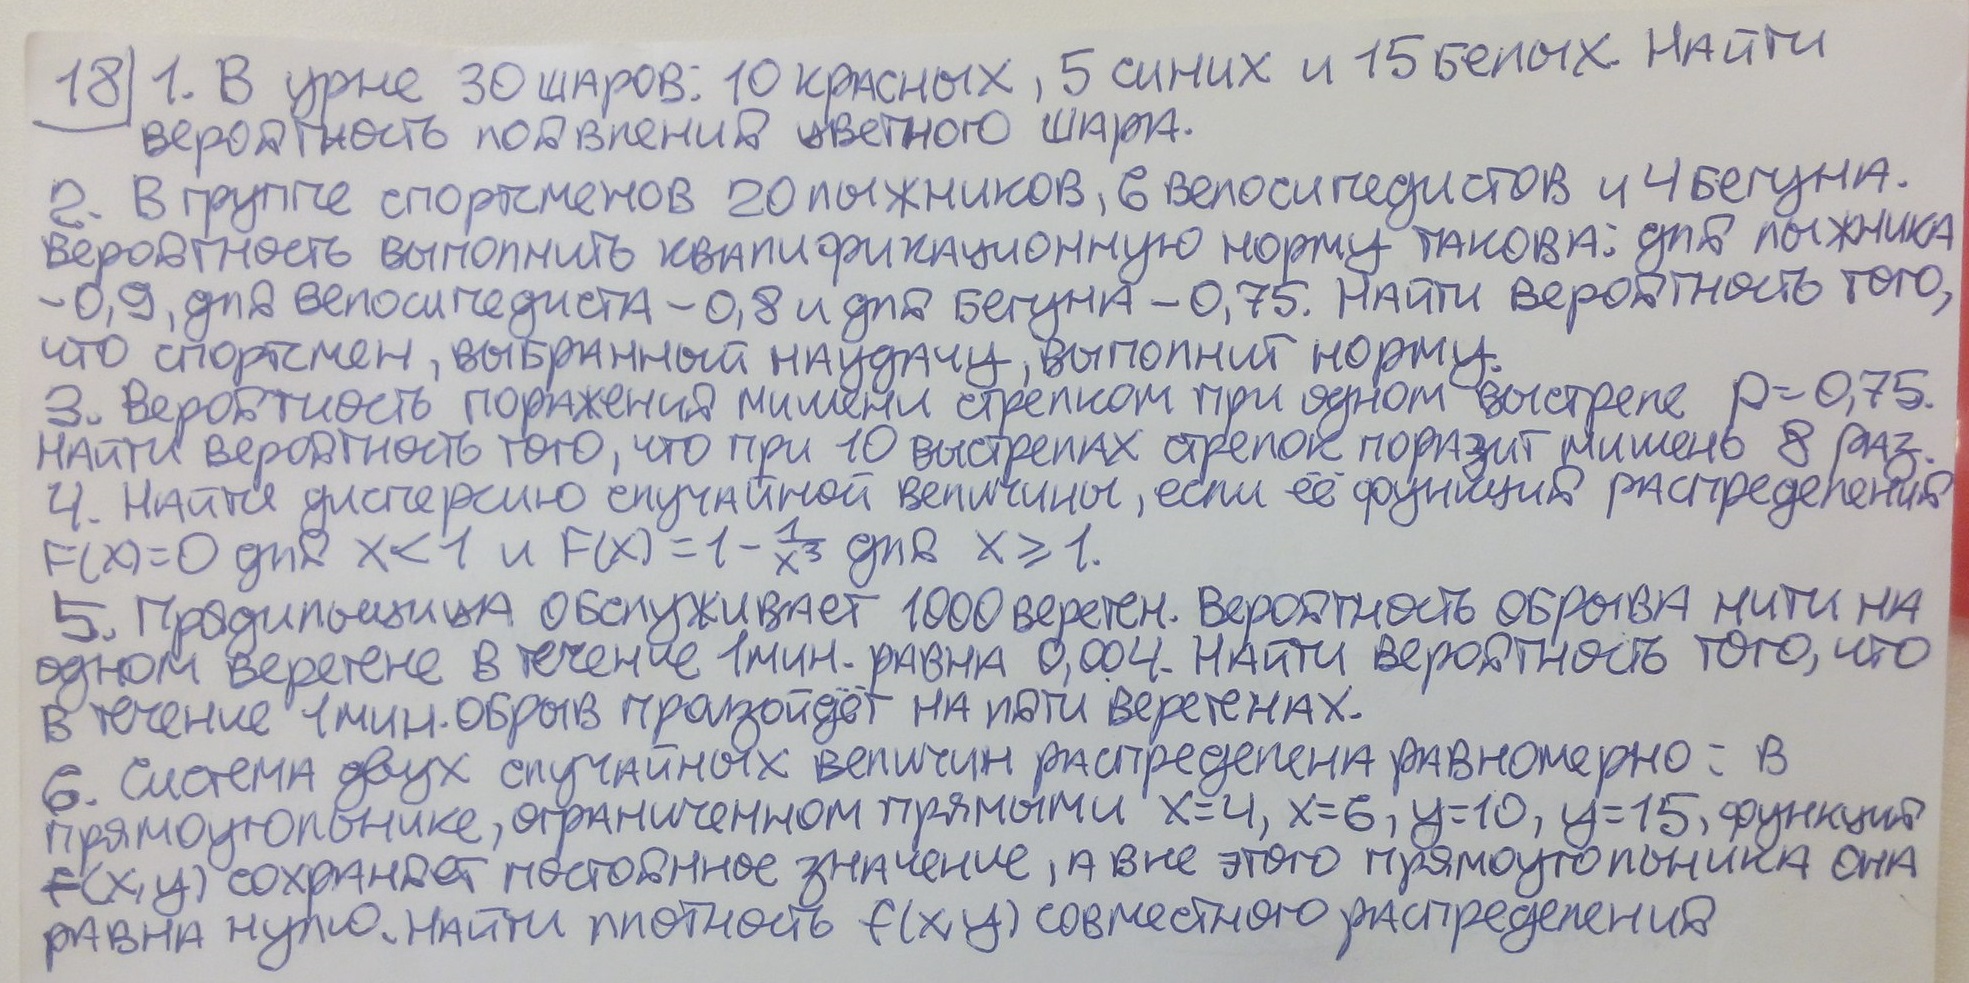 18 1. В урне 30 шаров: 10 красных, 5 синих и 15 белых. Найти
вероятность появления цветного шара.
2. В группе спортсменов 20 лыжников, 6 велосипедистов и 4 бегуна.
Вероятность выполнить квалификационную норму такова: для лыжника
- 0,9, для велосипедиста - 0,8 и для бегуна - 0,75. Найти вероятность того,
что спортсмен, выбранный наудачу, выполнит норму.
3. Вероятность поражения мишени стрелком при одном выстреле p=0,75.
Найти вероятность того, что при 10 выстрелах стрелок поразит мишень 8 раз.
4. Найти дисперсию случайной величины, если её функция распределения
F(x)=0 для x<1 и F(x)=1-1/x³ для x≥1.
5. Прядильщица обслуживает 1000 веретен. Вероятность обрыва нити на
одном веретене в течение 1 мин. равна 0,004. Найти вероятность того, что
в течение 1 мин. обрыв произойдёт на пяти веретенах.
6. Система двух случайных величин распределена равномерно: в
прямоугольнике, ограниченном прямыми x=4, x=6, y=10, y=15, функция
f(x,y) сохраняет постоянное значение, а вне этого прямоугольника она
равна нулю. Найти плотность f(x,y) совместного распределения